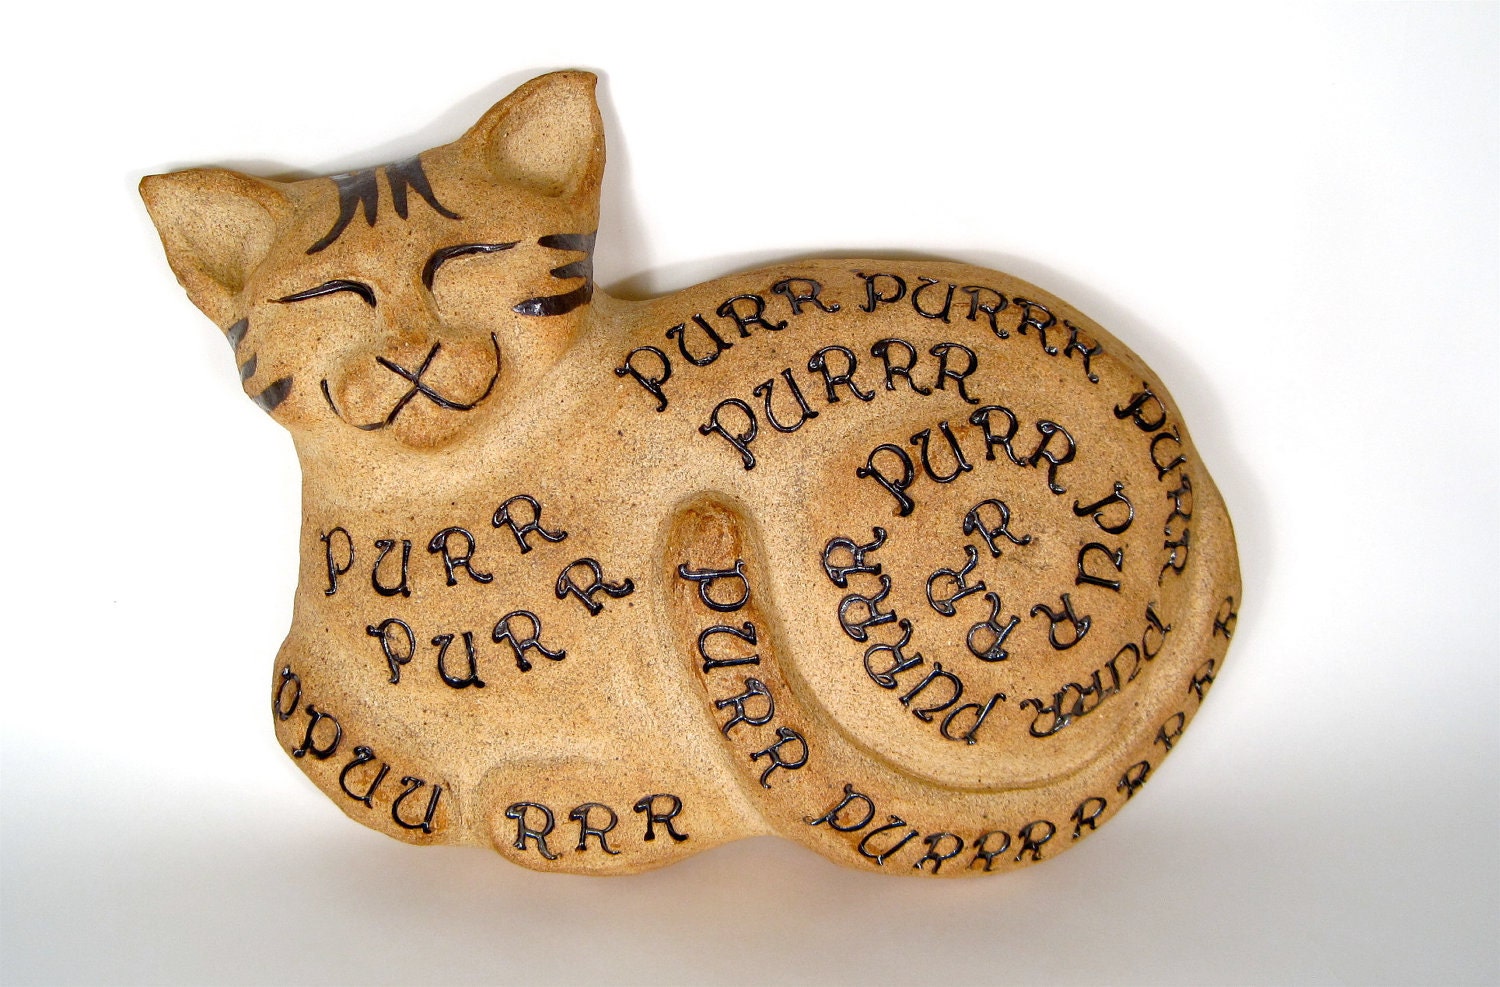 PURR PURRR PURR
PURRR
PURR PURRRR
PURR
PURR
PURRR
PURR
PURR
PPUU RRR
PURRRRRRRR